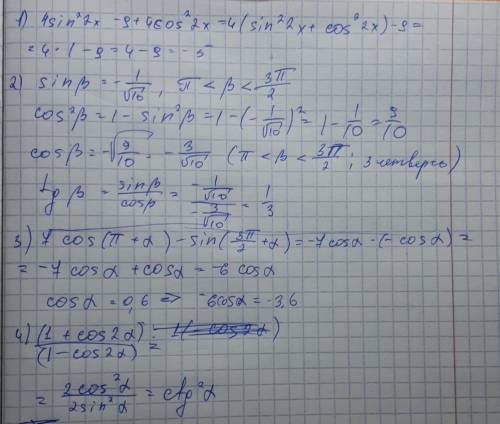 1) 4sin²2x - 9 + 4cos²2x = 4(sin²2x + cos²2x) - 9 =
= 4 · 1 - 9 = 4 - 9 = -5
2) sinβ = -1/√10, π < β < 3π/2
cos²β = 1 - sin²β = 1 - (-1/√10)² = 1 - 1/10 = 9/10
cosβ = -√(9/10) = -3/√10 (π < β < 3π/2; 3 четверть)
tg β = sinβ/cosβ = (-1/√10)/(-3/√10) = 1/3
3) 7 cos(π + α) - sin(3π/2 + α) = -7cosα - (-cosα) =
= -7cosα + cosα = -6 cosα
cosα = 0,6 => -6cosα = -3,6
4) (1 + cos2α)/(1 - cos2α) =
= 2cos²α/2sin²α = ctg²α